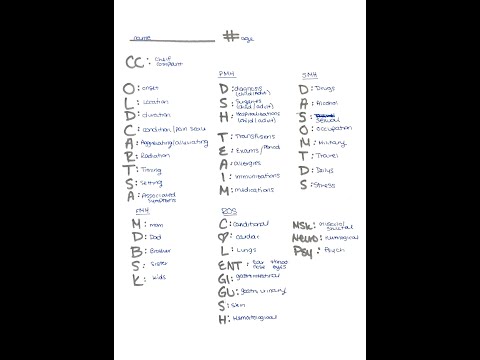 name # age
CC: Chief complaint
O: onset
L: Location
D: duration
C: condition/pain scale
A: Aggrevating/alleviating
R: Radiation
T: Timing
S: Setting
A: Associated
PMH
D: diagnosis (child/adult)
S: Surgeries (child/adult)
H: Hospitalizations (child/adult)
T: Transfusions
E: Exams/Period
A: allergies
I: Immunizations
M: medications
SMH
D: Drugs
A: Alcohol
S: Sexual
O: Occupation
M: Military
T: Travel
D: Daily's
S: Stress
FMH
M: mom
D: Dad
B: Brother
S: Sister
K: Kids
ROS
C: Conditional
♥: cardiac
L: Lungs
ENT: Ear throat nose eyes
GI: gastrointestinal
GU: gastro urinary
S: Skin
H: Hematological
MSK: musculo/skeletal
Neuro: numological
Psy: Psych